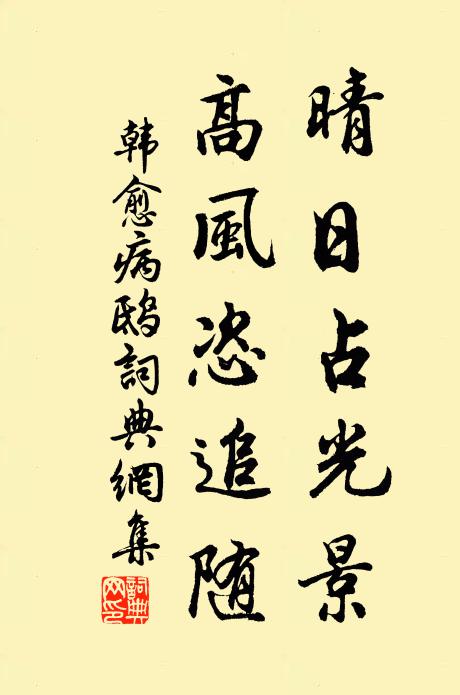 晴日占光景
高風恣追随
韩愈病鸱詞典網集
詞典网印